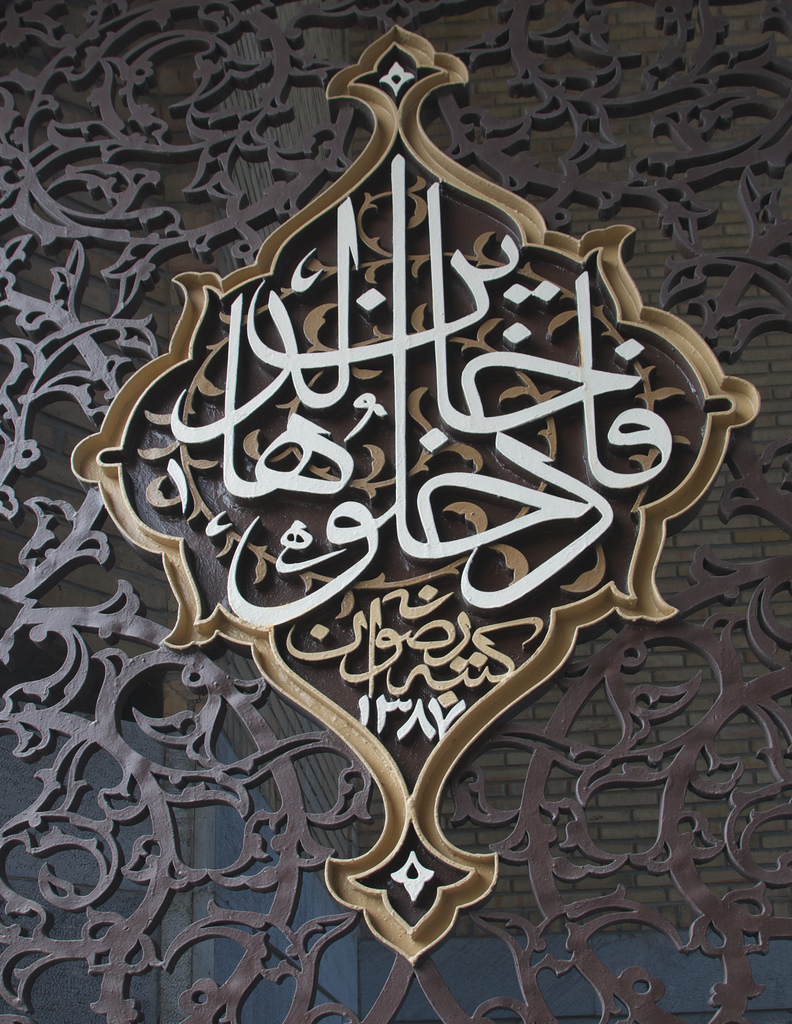 فادخلوها خالدین
کتبه رضوان
۱۳۸۷